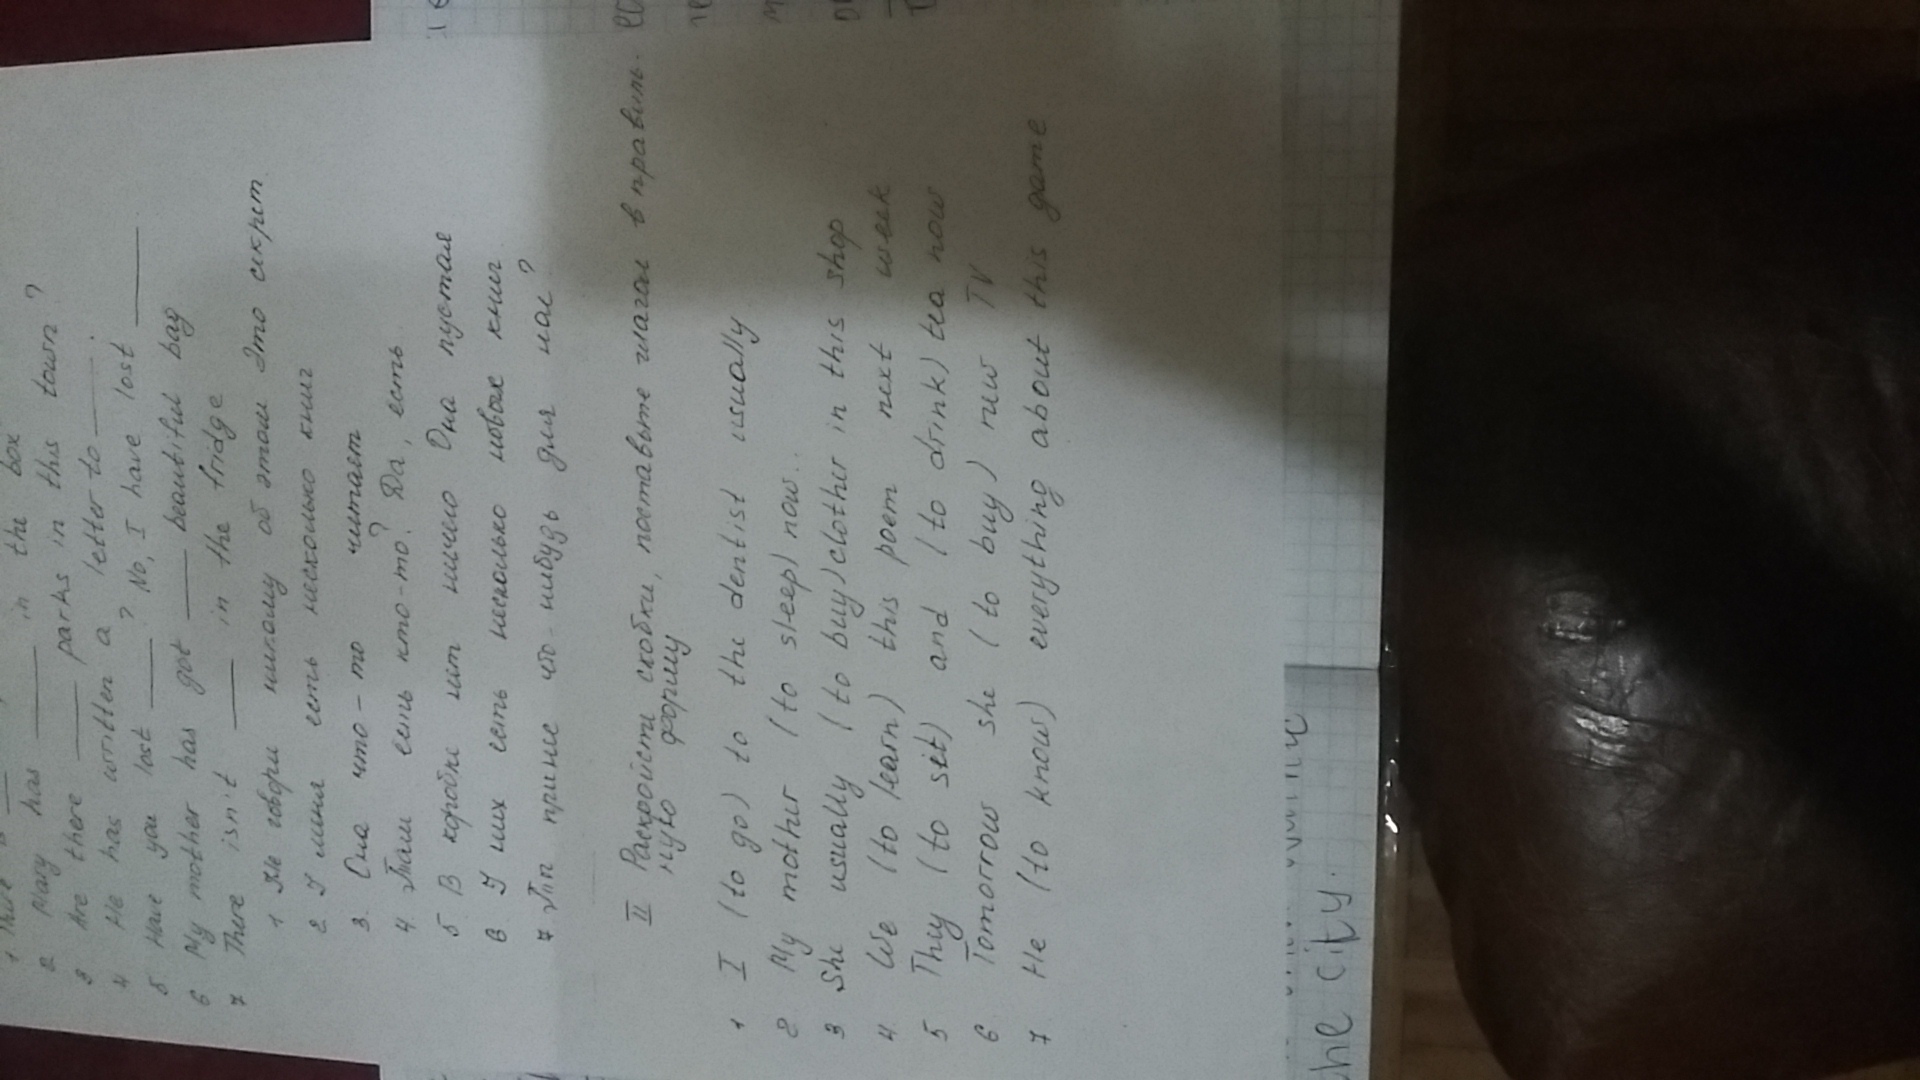 2 Mary has ___ in the box
3 Are there ___ parks in this town?
4 He has written a letter to ___.
5 Have you lost ___? No, I have lost ___
6 My mother has got ___ beautiful bag
7 There isn't ___ in the fridge
1 Не говори никому об этом Это секрет
2. У меня есть несколько книг
3. Она что-то читает
4. Там есть кто-то? Да, есть.
5 В коробке нет ничего Она пустая
6 У них есть несколько новых книг
7 Ты принес что-нибудь для нас?
II Раскройсти скобки, поставьте глагол в правиль-
ную форму
1 I (to go) to the dentist usually
2. My mother (to sleep) now...
3 She usually (to buy) clother in this shop
4. We (to learn) this poem next week
5 They (to sit) and (to drink) tea now
6 Tomorrow she (to buy) new TV
7. He (to know) everything about this game
he city.